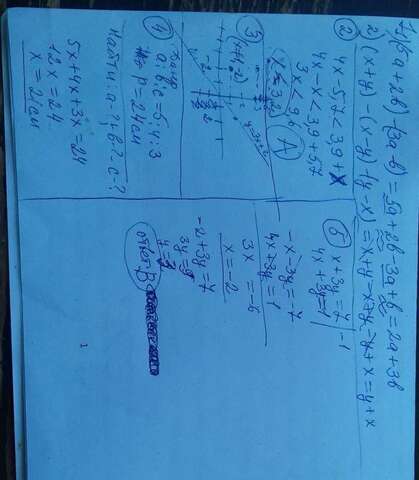 1) (5a+2b)-(3a-b)=5a+2b-3a+b=2a+3b
2) (x+y)-(x-y)+(y-x)=x+y-x+y
② 4x-5,7<3,9+x
4x-x<3,9+5,7
3x<9,6
A
③
④
a:b:c=5:4:3
P=24см
Найти: a-? b-? c-?
5x+4x+3x=24
12x=24
x=2
5 x+3y=7 |-1
4x+3y=1
-x-3y=-7
4x+3y=1
3x=-6
x=-2
-2+3y=7
3y=9
y=3
ответ B